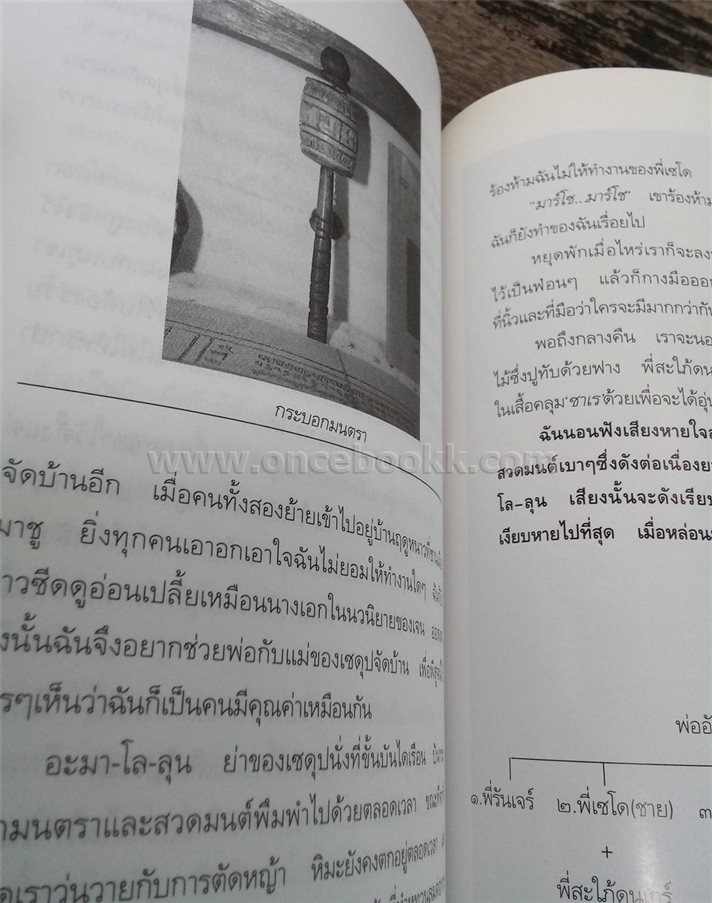 กระบอกมนตรา
จัดบ้านอีก เมื่อคนทั้งสองย้ายเข้าไปอยู่บ้านฤดูหนาว
มาชู ยิ่งทุกคนเอาอกเอาใจฉันไม่ยอมให้ทำงานใดๆ
าวซีดดูอ่อนเปลี้ยเหมือนนางเอกในนวนิยายของเจน
งนั้นฉันจึงอยากช่วยพ่อกับแม่ของเซดุปจัดบ้าน
รๆเห็นว่าฉันก็เป็นคนมีคุณค่าเหมือนกัน
อะมา-โล-ลุน ย่าของเซดุปนั่งที่ขั้นบันไดเรือน
ามนตราและสวดมนต์พึมพำไปด้วยตลอดเวลา
อเราวุ่นวายกับการตัดหญ้า หิมะยังคงตกอยู่ตลอดเวลา
ร้องห้ามฉันไม่ให้ทำงานของพี่เซโด
"มาร์โซ...มาร์โซ" เขาร้องห้าม
ฉันก็ยังทำของฉันเรื่อยไป
หยุดพักเมื่อไหร่เราก็จะลง
ไว้เป็นฟ่อนๆ แล้วก็กางมือออก
ที่นิ้วและที่มือว่าใครจะมีมากกว่ากัน
พอถึงกลางคืน เราจะนอ
ไม้ซึ่งปูทับด้วยฟาง พี่สะใภ้ดน
ในเสื้อคลุม'ซาเร'ด้วยเพื่อจะได้อุ่น
ฉันนอนฟังเสียงหายใจส
สวดมนต์เบาๆซึ่งดังต่อเนื่องย
โล-ลุน เสียงนั้นจะดังเรีย
เงียบหายไปที่สุด เมื่อหล่อน
พ่ออั
๑.พี่รันเจร์ ๒.พี่เซโด(ชาย) ๓
+
พี่สะใภ้ดนเกร์
www.oncebookk.com